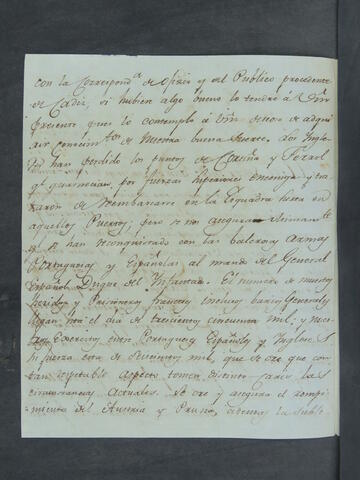 con la Correspond.ª de oficio y del Público procedente
de Cadiz, si hubiere algo bueno lo tendré á Vm
presente que lo contemplo á Vm deseoso de adqui
rir conocim.tos de nuestra buena suerte. Los Yngle
ses han perdido los puntos de Coruña y Ferrol
q.e guarnecian por fuerzas superiores enemigas y tra
taron de reembarcarse en la Esquadra surta en
aquellos Puertos; pero se nos asegura
q.e se han reconquistado con las valerosas Armas
Portuguesas y Españolas al mando del General
Español Duque del Infantado. El numero de muertos
heridos y Prisioneros franceses inclusos varios Generales
llegan hta el dia de trescientos cincuenta mil, y nues
tro Exercito entre Portugueses Españoles y Ingleses. S
su fuerza esta de Setecientos mil, que se cree que con
tan respetable aspecto tomen distinto cariz las
circunstancias actuales. Se cree y asegura el rompi
miento del Austria y Prusia, ademas la suble